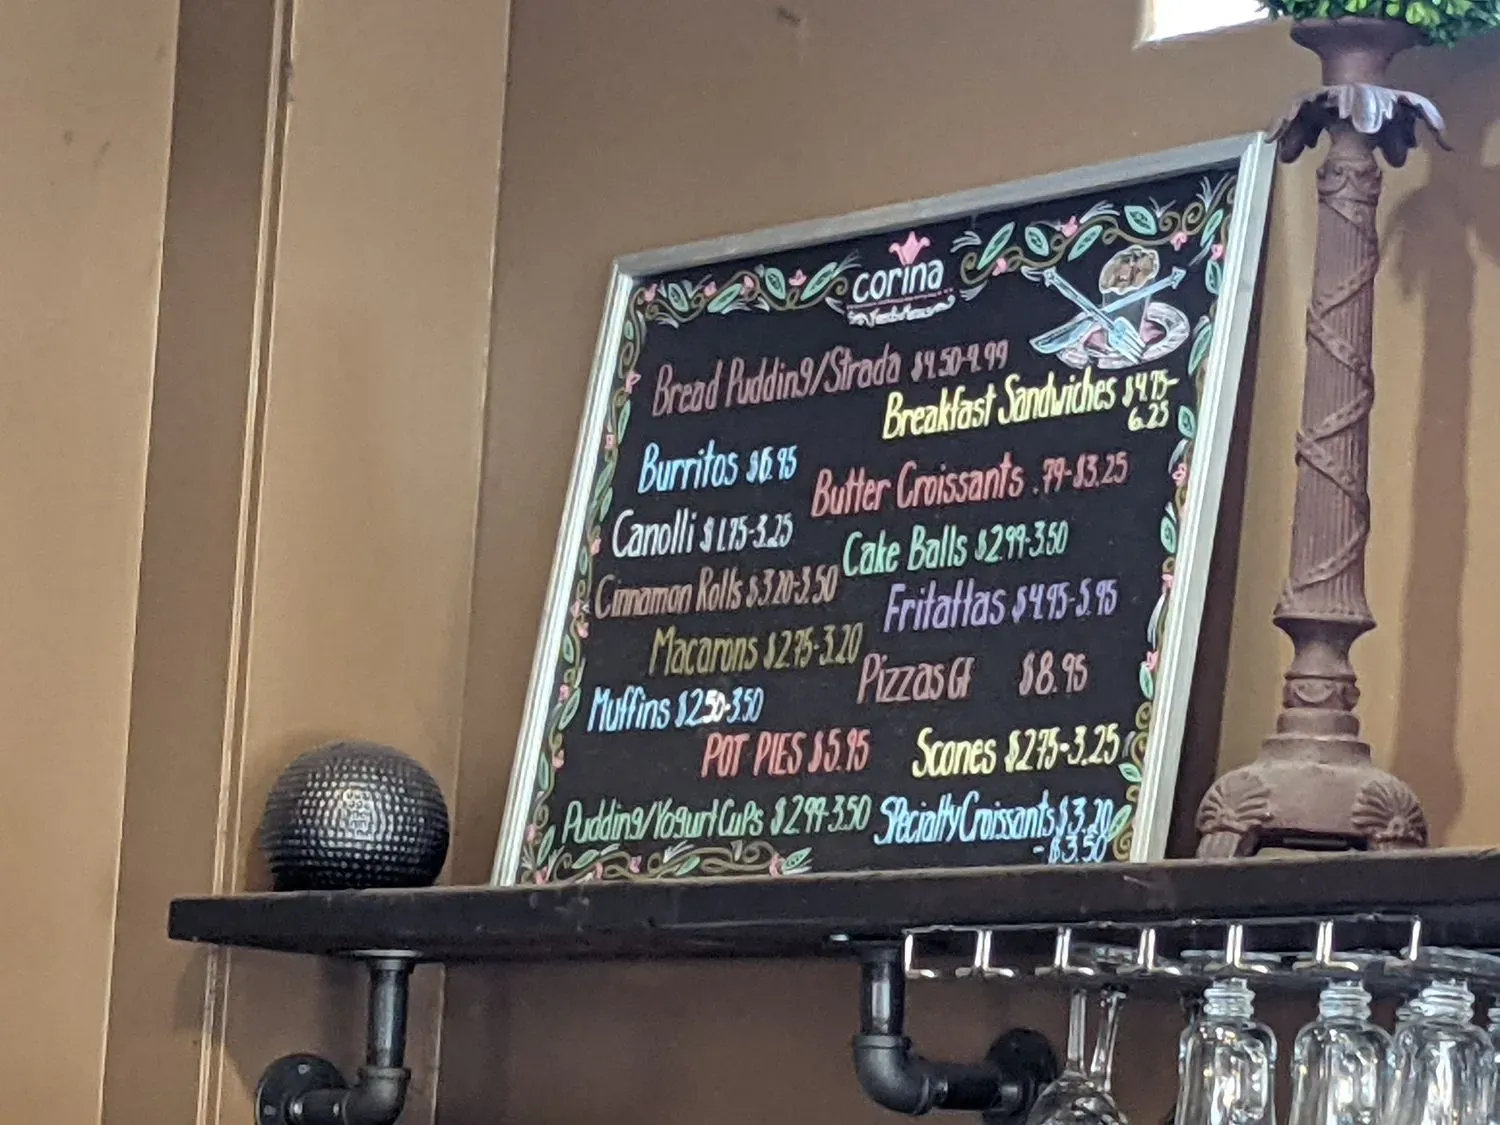 corina
Bread Pudding/Strada $4.50-4.99
Breakfast Sandwiches $4.75-
6.25
Burritos $6.95
Butter Croissants .79-$3.25
Canolli $1.75-3.25
Cake Balls $2.99-3.50
Cinnamon Rolls $3.20-3.50
Fritattas $4.95-5.95
Macarons $2.75-3.20
Pizzas GF $8.95
Muffins $2.50-3.50
POT PIES $5.95
Scones $2.75-3.25
Pudding/Yogurt Cups $2.99-3.50
Specialty Croissants $3.20
-$3.50